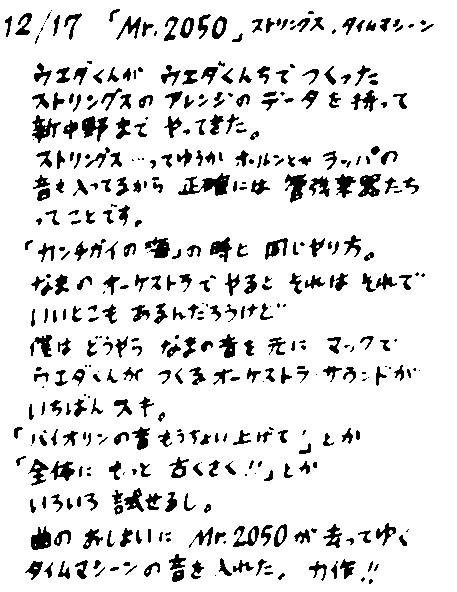 12/17 「Mr.2050」ストリングス、タイムマシーン
ウエダくんが ウエダくんちで つくった
ストリングスの アレンジの データを 持って
新中野まで やってきた。
ストリングス…ってゆうか ホルンとか ラッパの
音も入ってるから 正確には 管弦楽器たち
ってことです。
「カンチガイの海」の時と 同じやり方。
なまの オーケストラで やると それは それで
いいとこも あるんだろうけど
僕は どうやら なまの音を 元に マックで
ウエダくんが つくる オーケストラ・サウンドが
いちばん スキ。
「バイオリンの音 もうちょい上げて!」とか
「全体に もっと 古くさく!!」とか
いろいろ 試せるし。
曲の おしまいに Mr.2050が 去ってゆく
タイムマシーンの音を 入れた。 力作!!